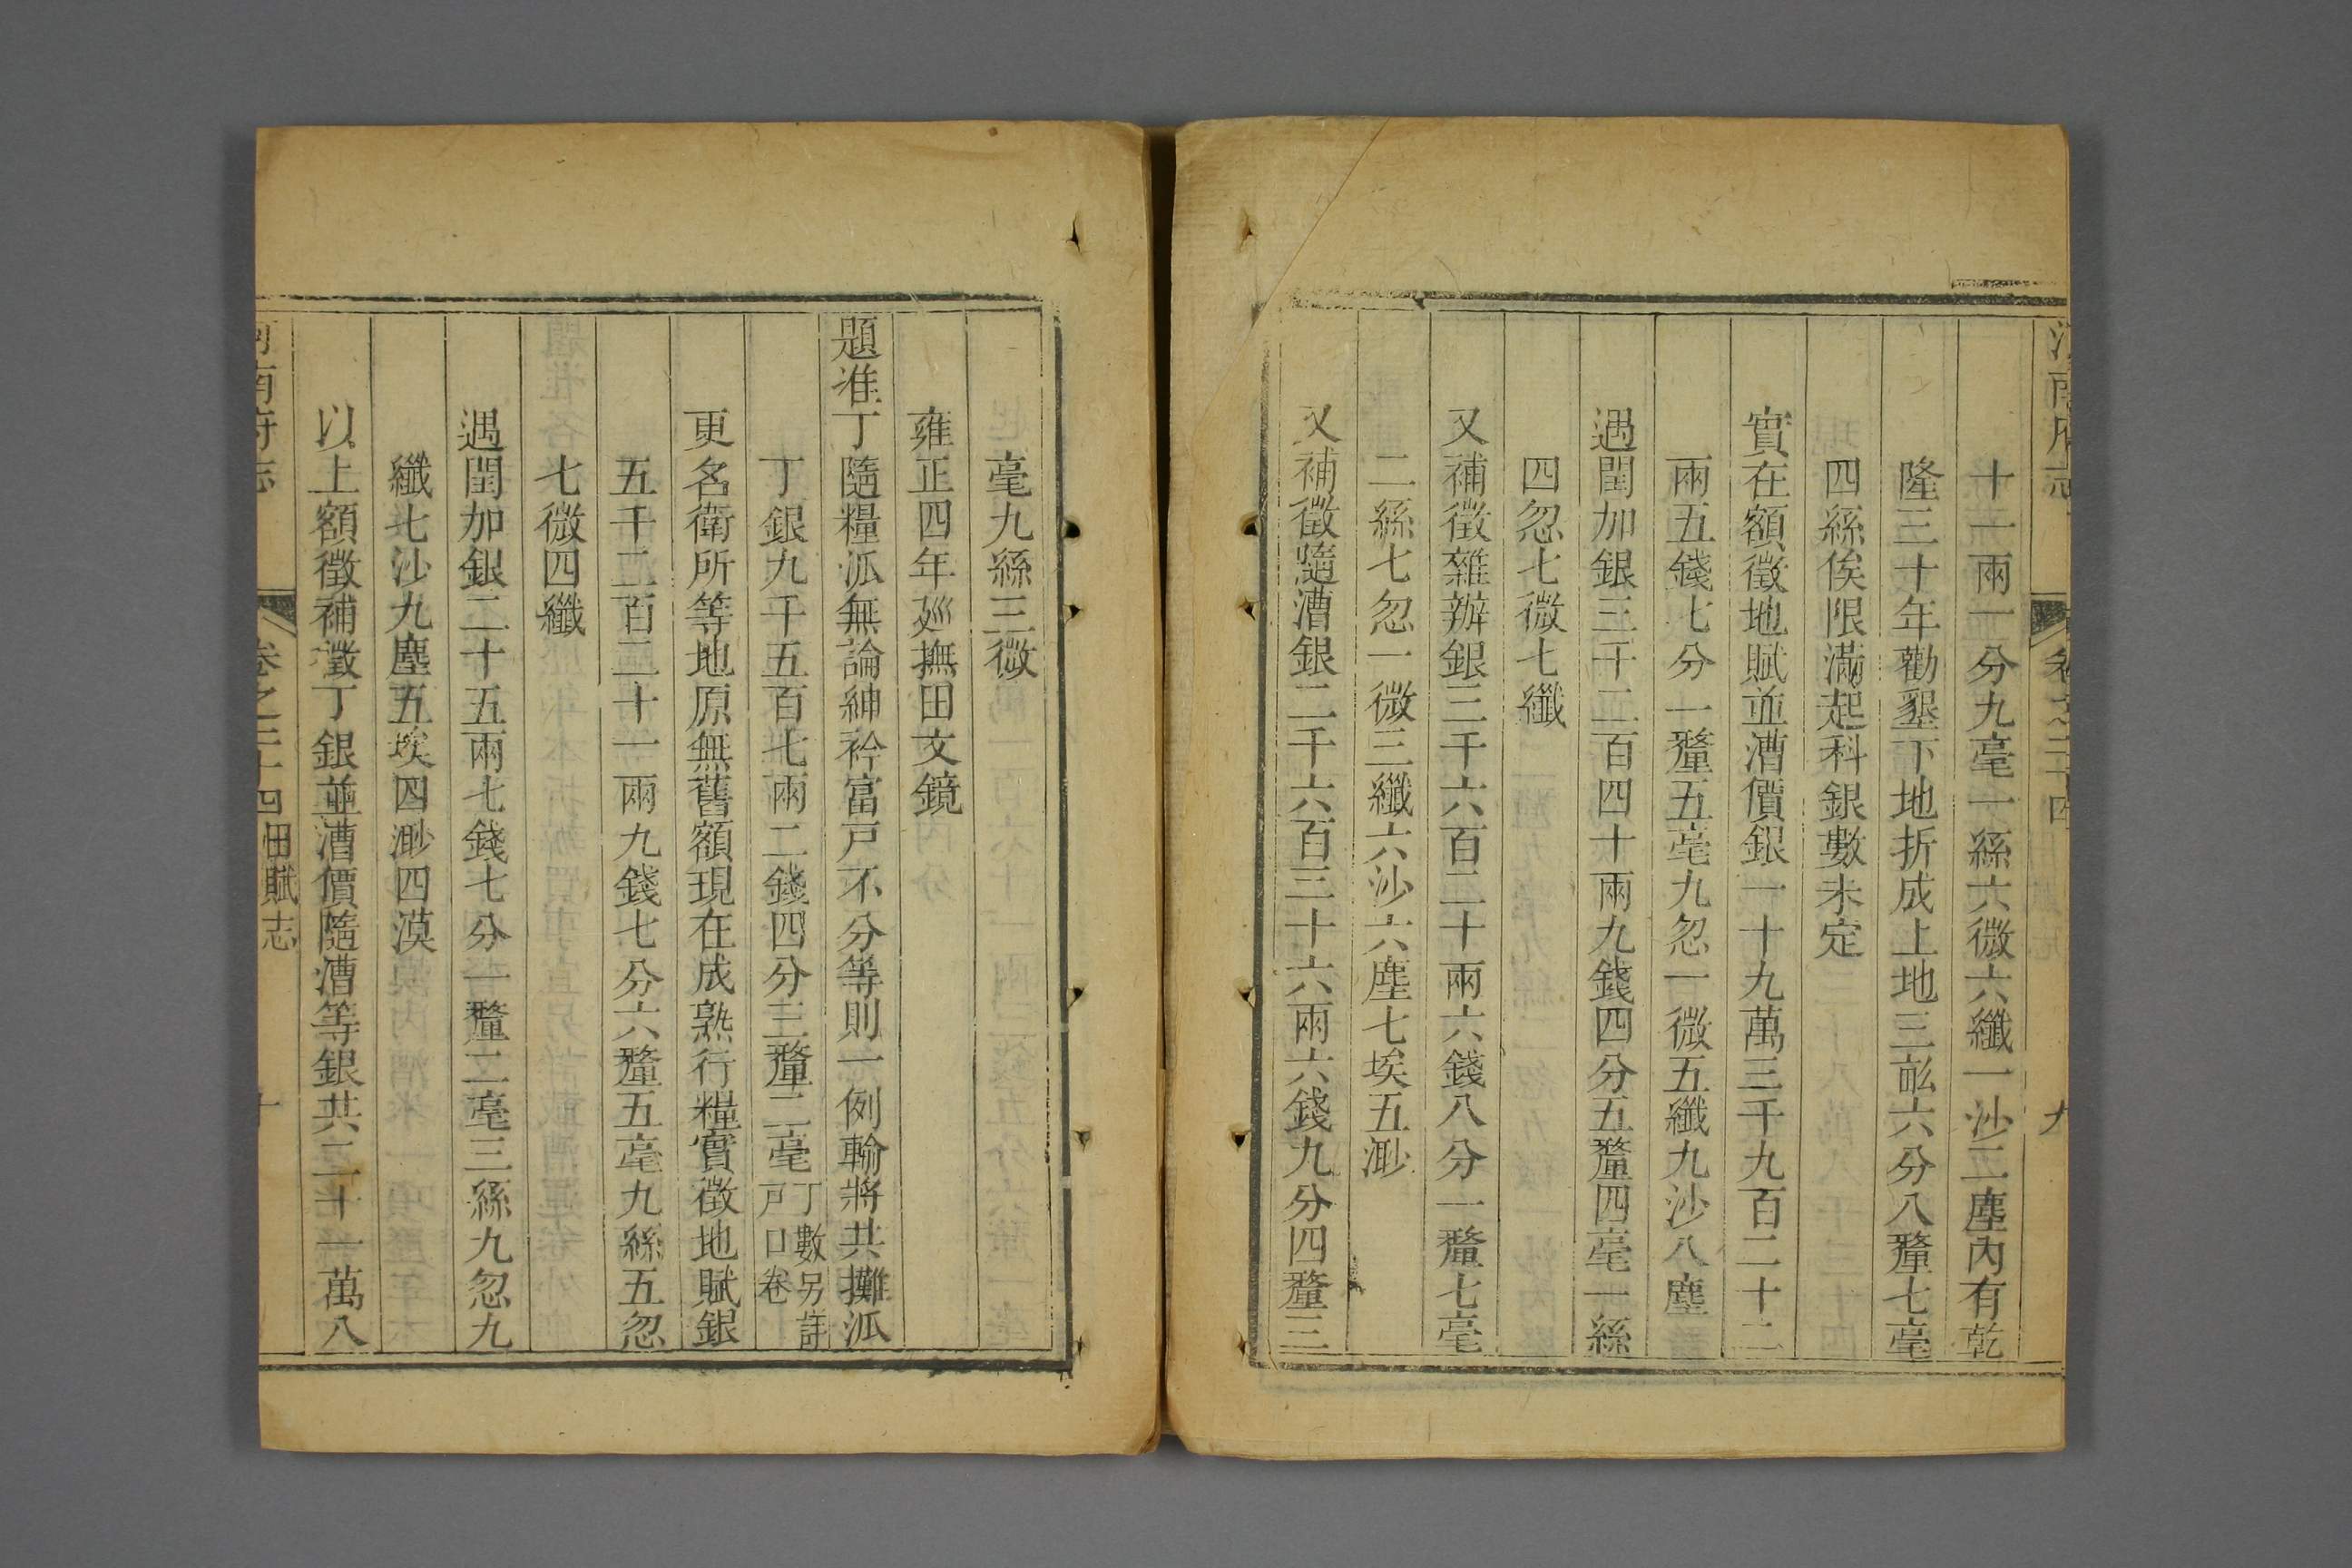 河南府志 卷之二十四 九
十一兩一分九毫一絲六微六纖一沙二塵內有乾
隆三十年勸墾下地折成上地三畝六分八釐七毫
四絲俟限滿起科銀數未定
實在額徵地賦並漕價銀一十九萬三千九百二十二
兩五錢七分一釐五毫九忽一微五纖九沙八塵
遇閏加銀三千二百四十兩九錢四分五釐四毫一絲
四忽七微七纖
又補徵雜辦銀三千六百二十兩六錢八分一釐七毫
二絲七忽一微三纖六沙六塵七埃五渺
又補徵隨漕銀二千六百三十六兩六錢九分四釐三
毫九絲三微
雍正四年廵撫田文鏡
題准丁隨糧派無論紳衿富戸不分等則一例輸將共攤派
丁銀九千五百七兩二錢四分三釐二毫丁數另註戸口卷
更名衛所等地原無舊額現在成熟行糧實徵地賦銀
五千二百二十一兩九錢七分六釐五毫九絲五忽
七微四纖
遇閏加銀二十五兩七錢七分一釐二毫三絲九忽九
纖七沙九塵五埃四渺四漠
以上額徵補徵丁銀並漕價隨漕等銀共二十一萬八
河南府志 卷之二十四 田賦志 十